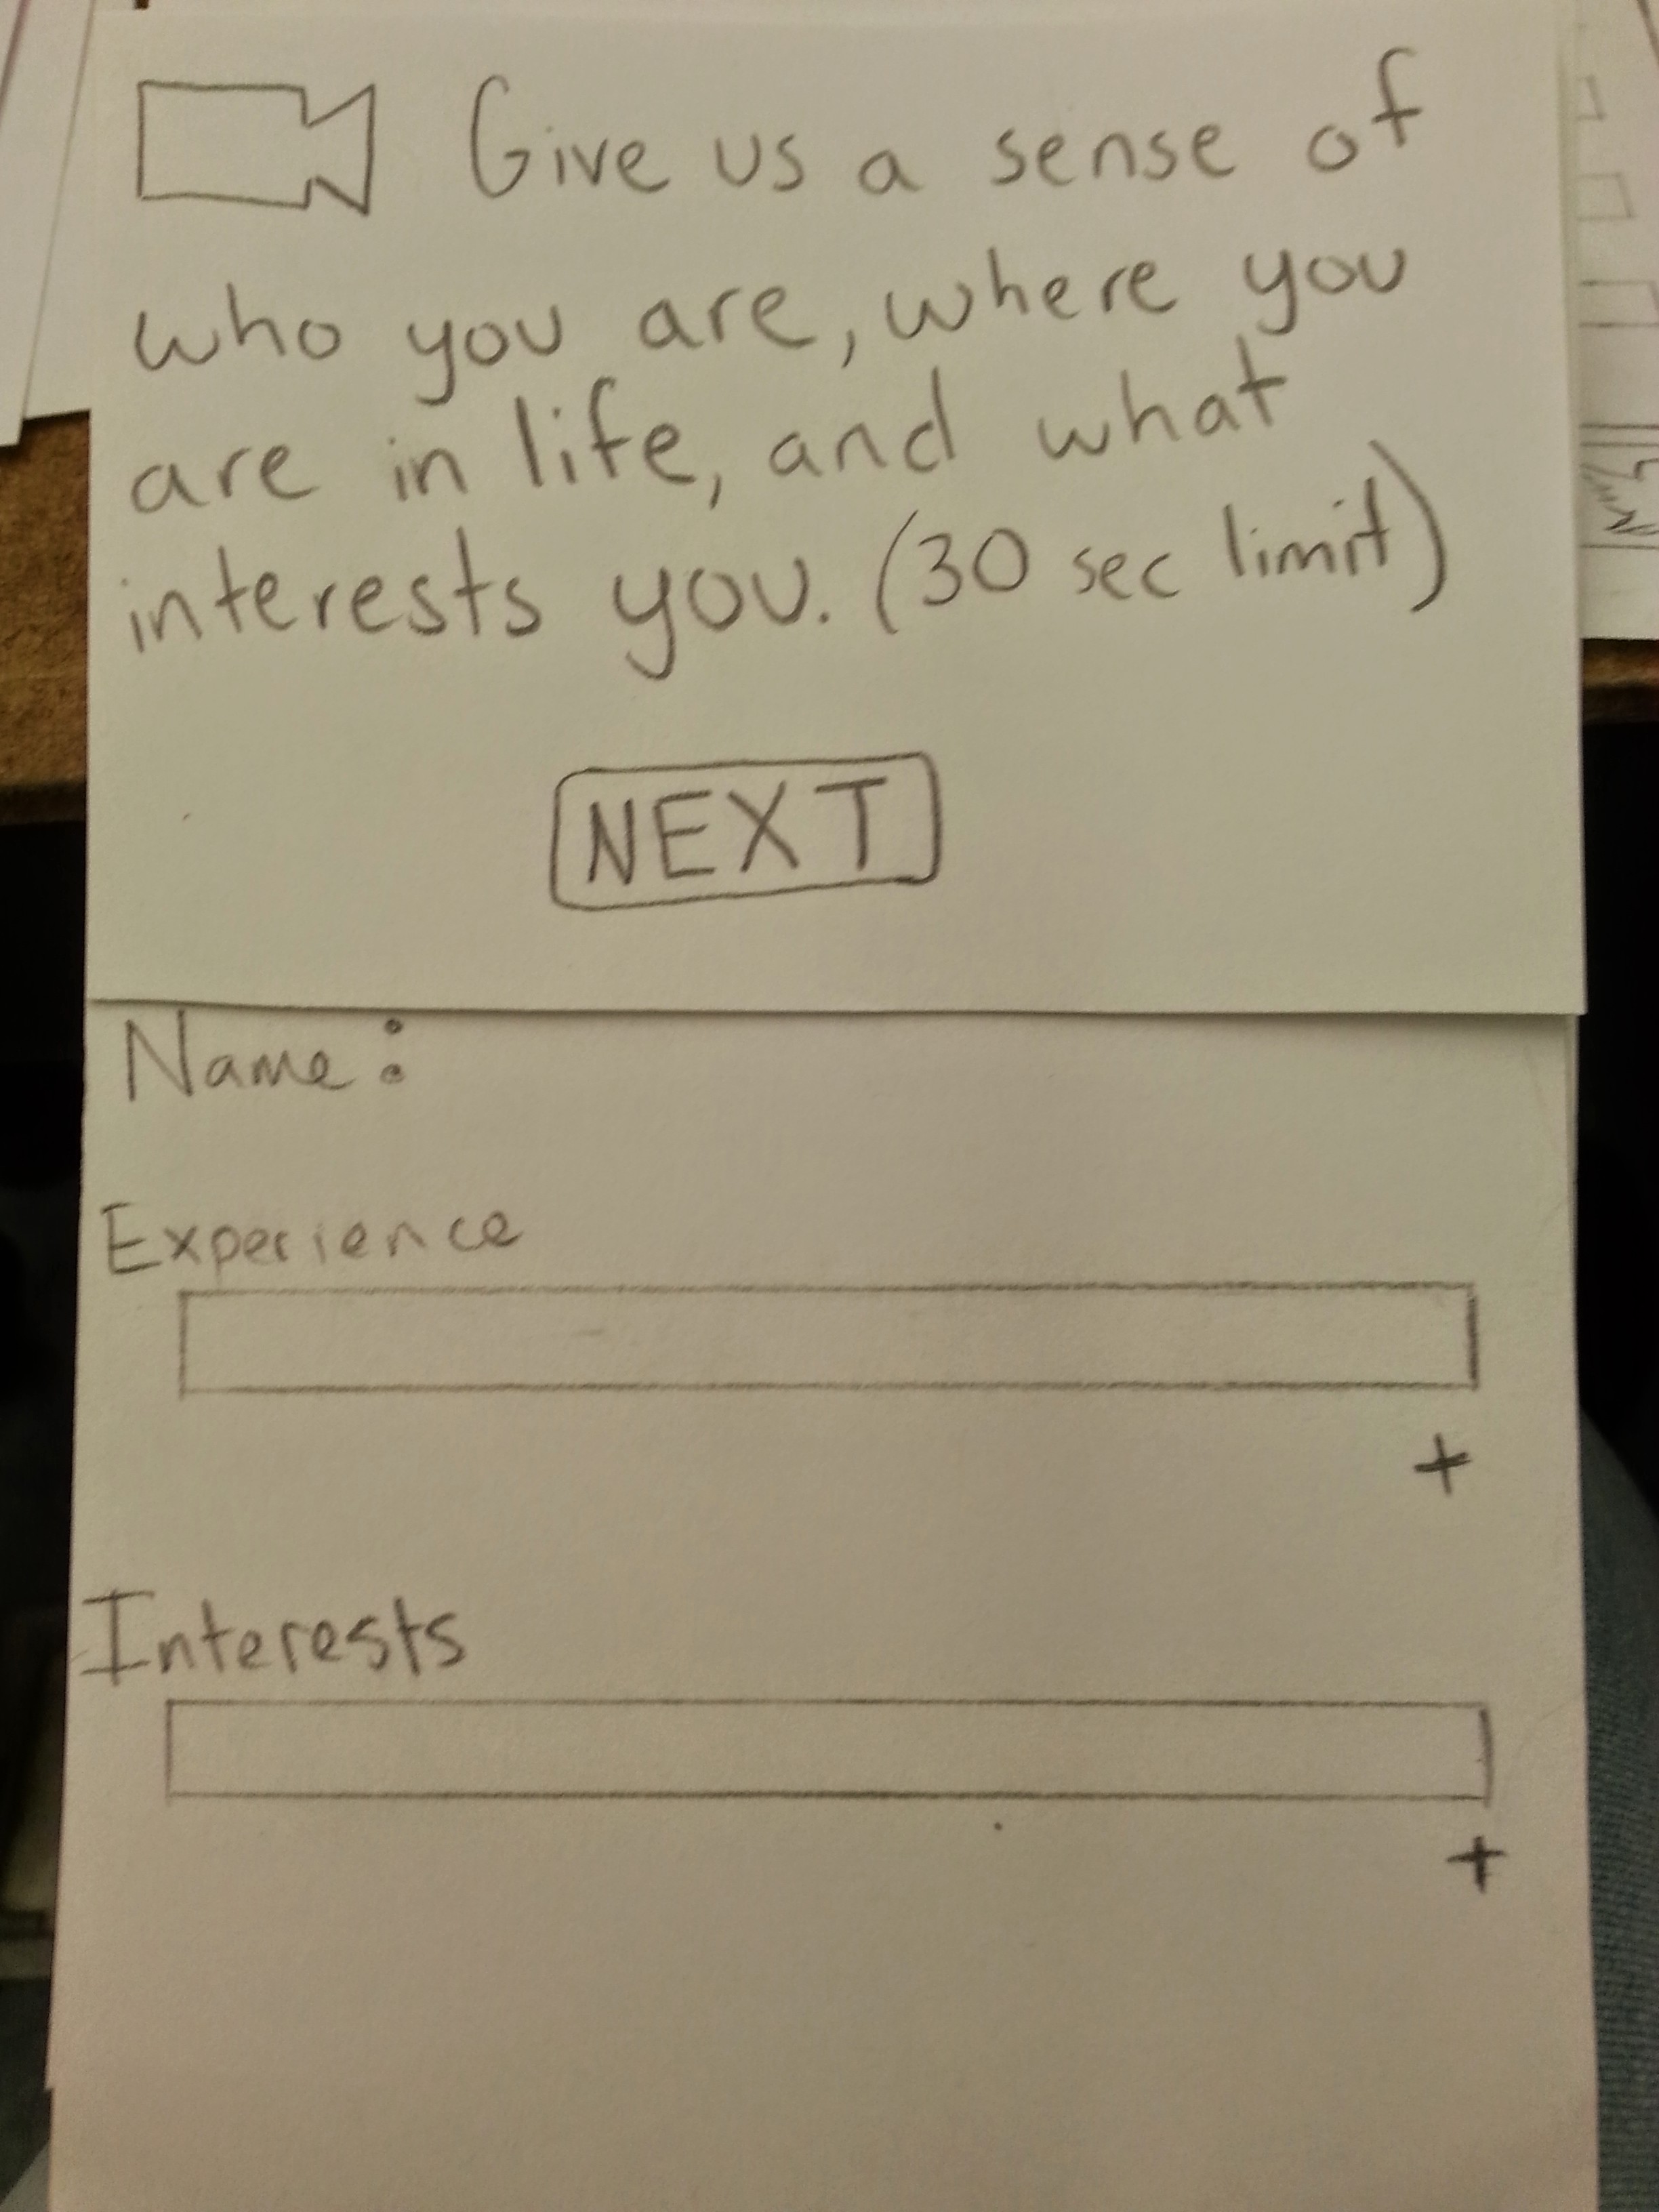 Give us a sense of
who you are, where you
are in life, and what
interests you. (30 sec limit)
NEXT
Name:
Experience
+
Interests
+